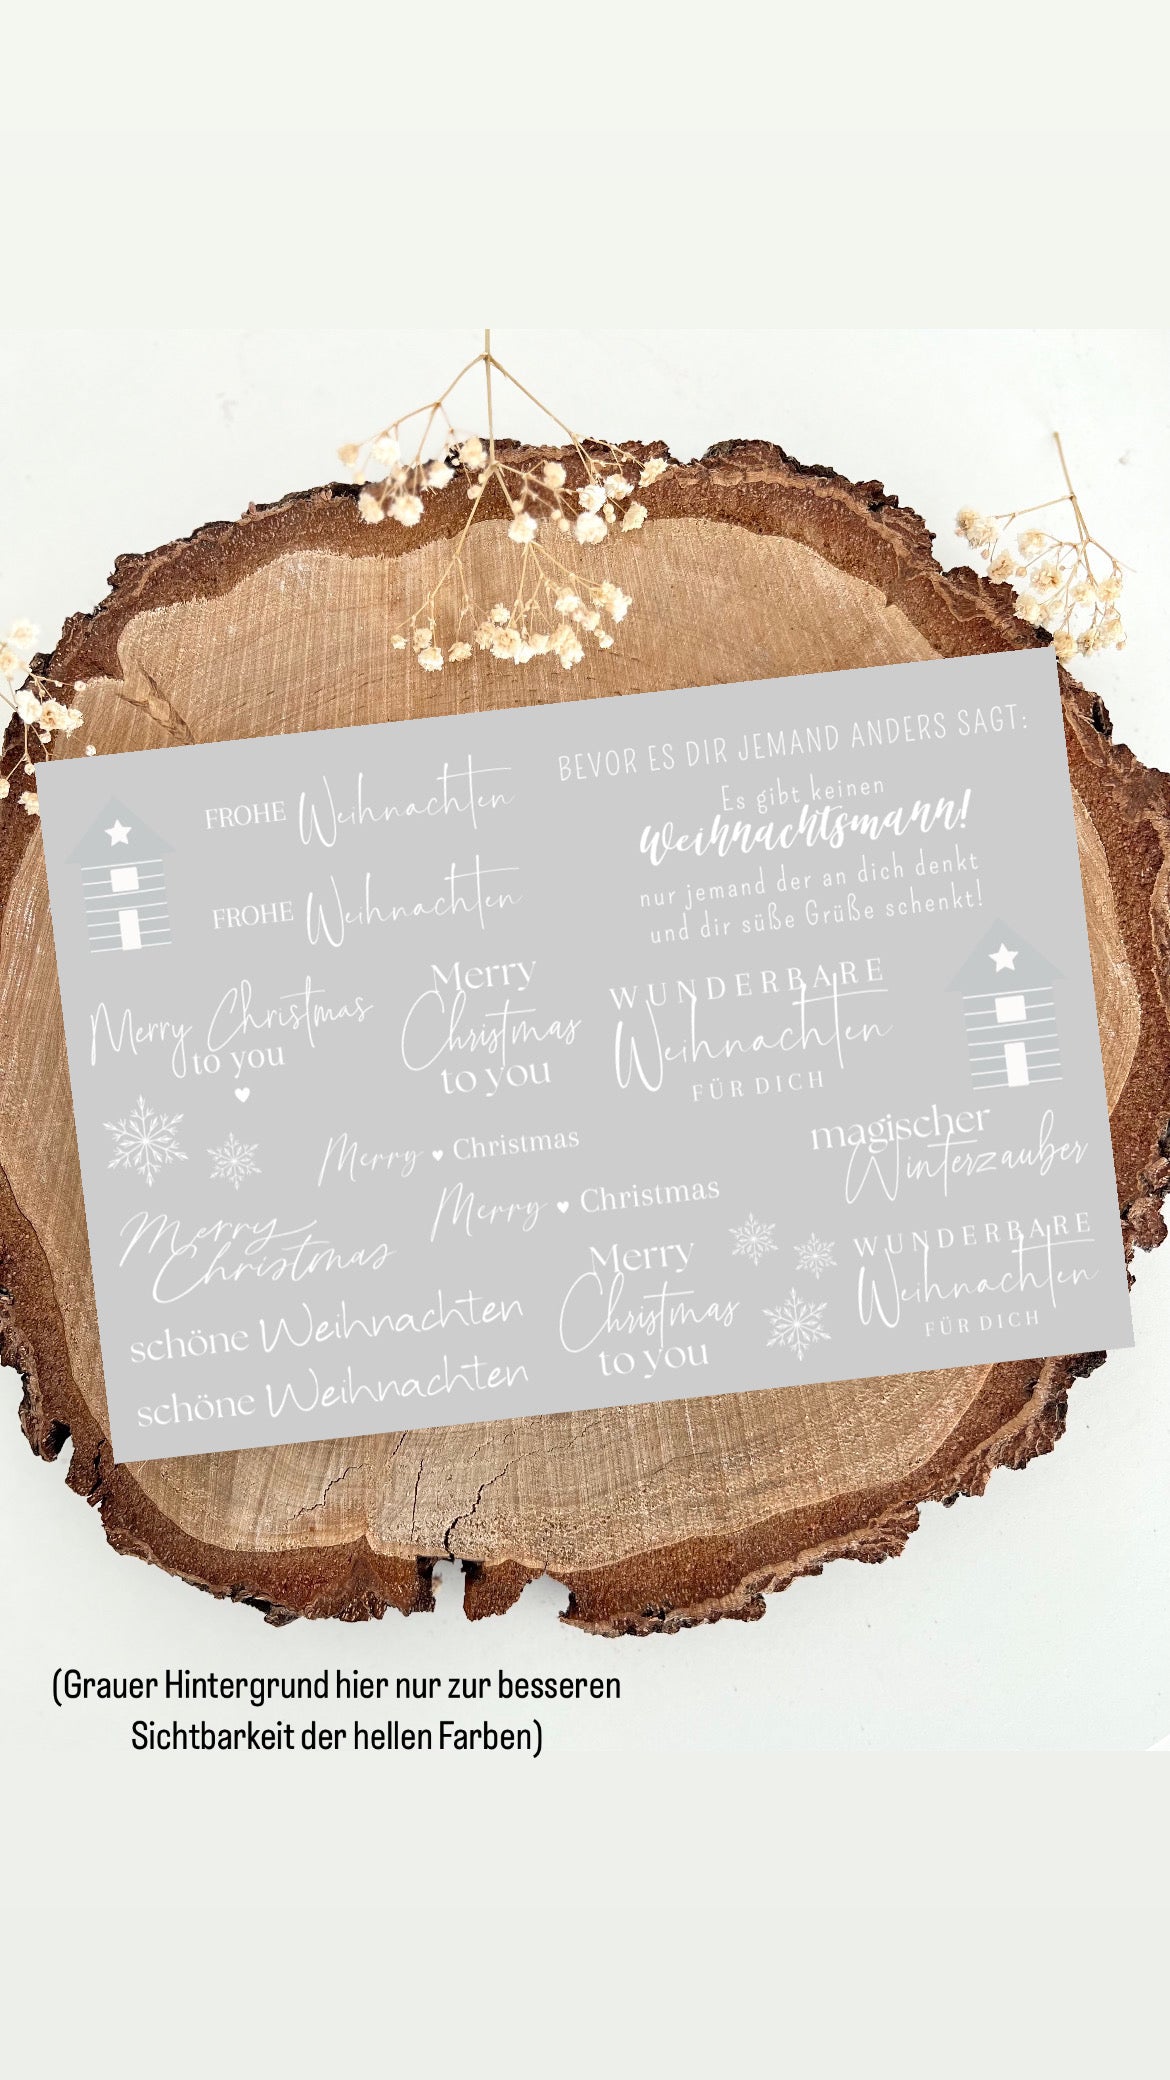 BEVOR ES DIR JEMAND ANDERS SAGT:
Es gibt keinen
Weihnachtsmann!
nur jemand der an dich denkt
und dir süße Grüße schenkt!
FROHE Weihnachten
FROHE Weihnachten
Merry Christmas
to you
Merry
Christmas
to you
WUNDERBARE
Weihnachten
FÜR DICH
Merry Christmas
Merry Christmas
magischer
Winterzauber
Merry
Christmas
schöne Weihnachten
schöne Weihnachten
Merry
Christmas
to you
WUNDERBARE
Weihnachten
FÜR DICH
(Grauer Hintergrund hier nur zur besseren
Sichtbarkeit der hellen Farben)